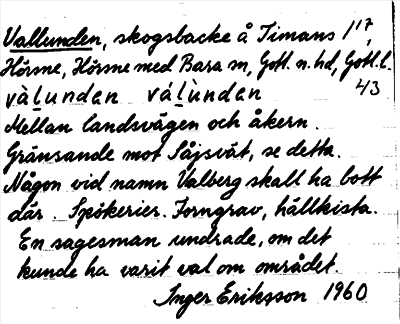 Vallunden, skogsbacke å Timans 1¹⁷,
Hörsne, Hörsne med Bara sn, Gotl. n. hd, Gotl. l.
vàlunden vàlùnden 43
Mellan landsvägen och åkern.
Gränsande mot Såjsvät, se detta.
Någon vid namn Valberg skall ha bott
där. Spökerier. Forngrav, hällkista.
En sagesman undrade, om det
kunde ha varit val om området.
Inger Eriksson 1960